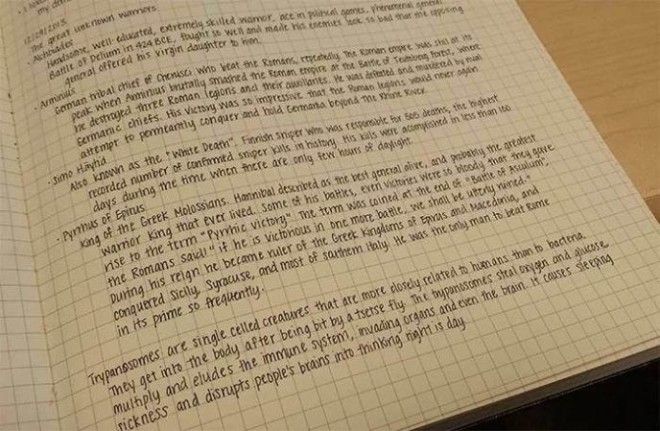 12/21/2015
The great unknown warriors.
· Alcibiades
Handsome, well-educated, extremely skilled warrior, ace in political games, phenomenal general
Battle of Delium in 424 BCE, fought so well and made his enemies look so bad that the opposing
general offered his virgin daughter to him.
· Arminius
German tribal chief of Cherusci who beat the Romans, repeatedly. The Roman empire was still at its
peak when Arminius brutally smashed the Roman empire at the Battle of Teutoburg forest, where
he destroyed three Roman legions and their auxiliaries. He was defeated and murdered by rival
Germanic chiefs. His victory was so impressive that the Roman legions would never again
attempt to permeantly conquer and hold Germania beyond the Rhine River.
· Simo Häyhä
Also known as the "White Death". Finnish sniper who was responsible for 505 deaths, the highest
recorded number of confirmed sniper kills in history. His kills were acomplished in less than 100
days during the time when there are only few hours of daylight.
· Pyrrhus of Epirus
King of the Greek Molossians. Hannibal described as the best general alive, and probably the greatest
warrior king that ever lived. Some of his battles, even victories were so bloody that they gave
rise to the term "Pyrrhic victory." The term was coined at the end of a "Battle of Asculum",
the Romans said: "if he is victorious in one more battle, we shall be utterly ruined."
During his reign he became ruler of the Greek Kingdoms of Epirus and Macedonia, and
conquered Sicily, Syracuse, and most of southern Italy. He was the only man to beat Rome
in its prime so frequently.
Trypanosomes are single celled creatures that are more closely related to humans than to bacteria.
They get into the body after being bit by a tsetse fly. The trypanosomes steal oxygen and glucose,
multiply and eludes the immune system, invading organs and even the brain. It causes sleeping
sickness and disrupts people's brains into thinking night is day.